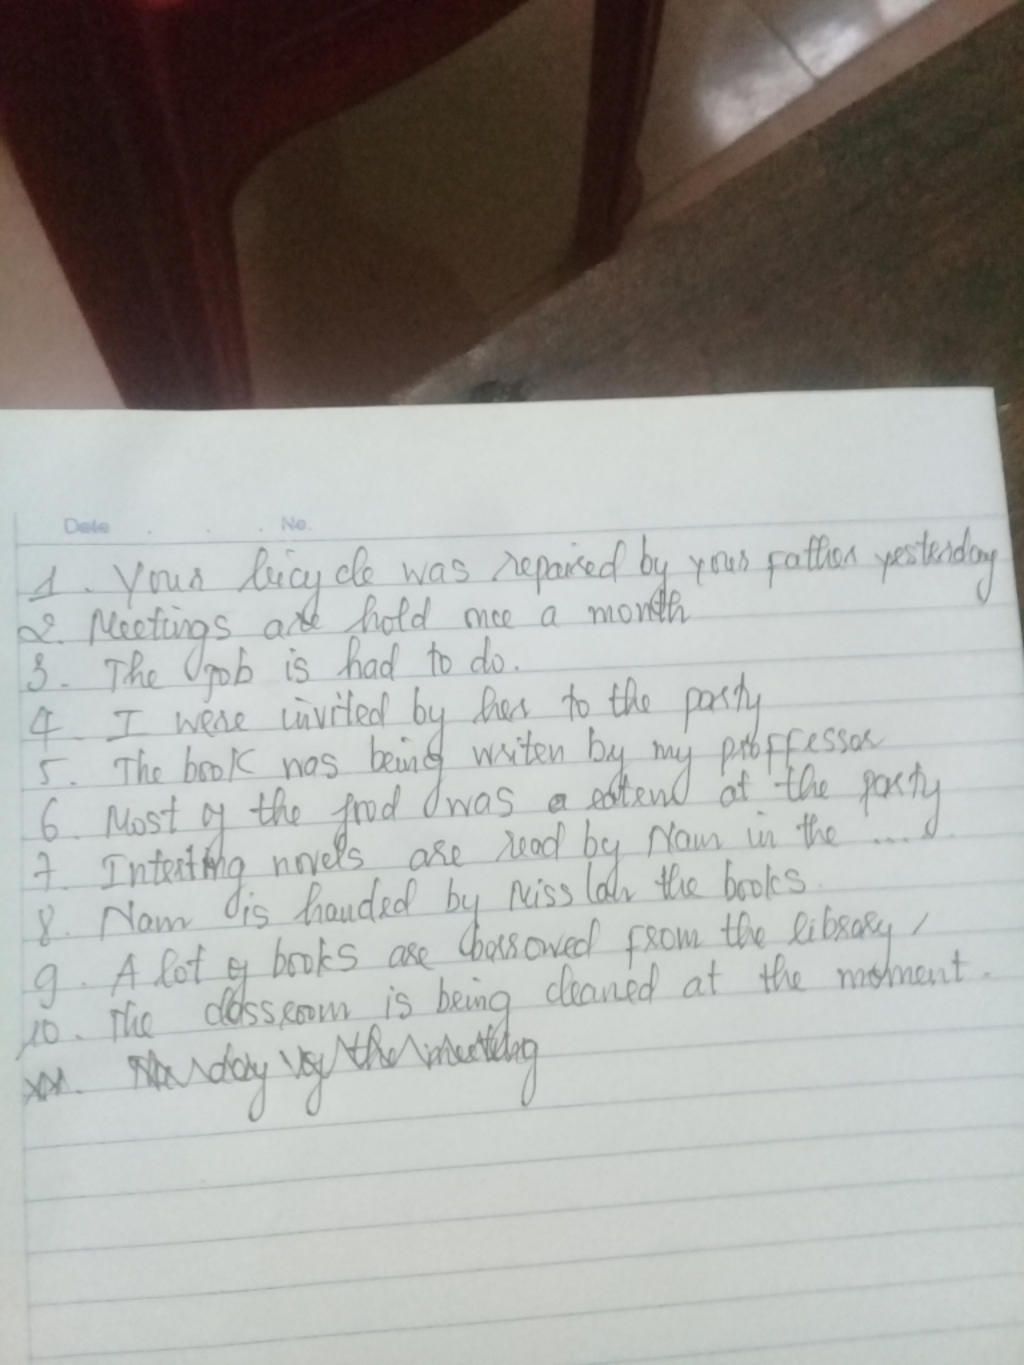 Date . . . No.
1. Your bicycle was repaired by your father yesterday
2. Meetings are hold once a month
3. The job is had to do.
4. I were invited by her to the party
5. The book was being writen by my proffessor
6. Most of the food was at the party
7. novels are read by Nam in the ....
8. Nam is handed by Miss Lan the books.
9. A lot of books are borrowed from the library
10. The classroom is being cleaned at the moment.